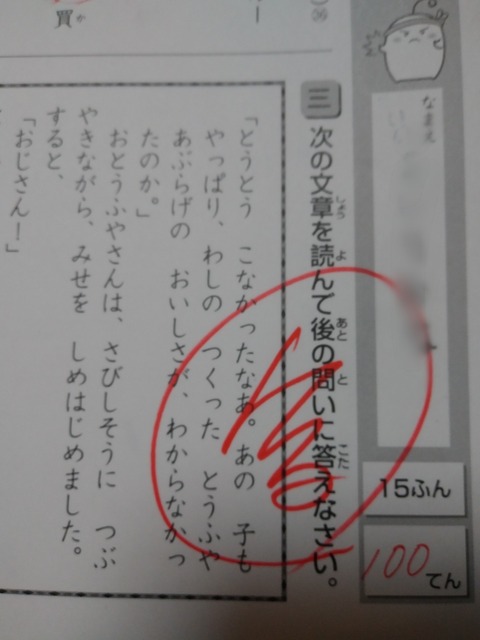 ㊱
買
か
なまえ
15ふん
100
てん
三 次の文章を読んで後の問いに答えなさい。
しょう よ あと と こた
「とうとう こなかったなあ。あの 子も
やっぱり、わしの つくった とうふや
あぶらげの おいしさが、わからなかっ
たのか。」
おとうふやさんは、さびしそうに つぶ
やきながら、みせを しめはじめました。
すると、
「おじさん！」